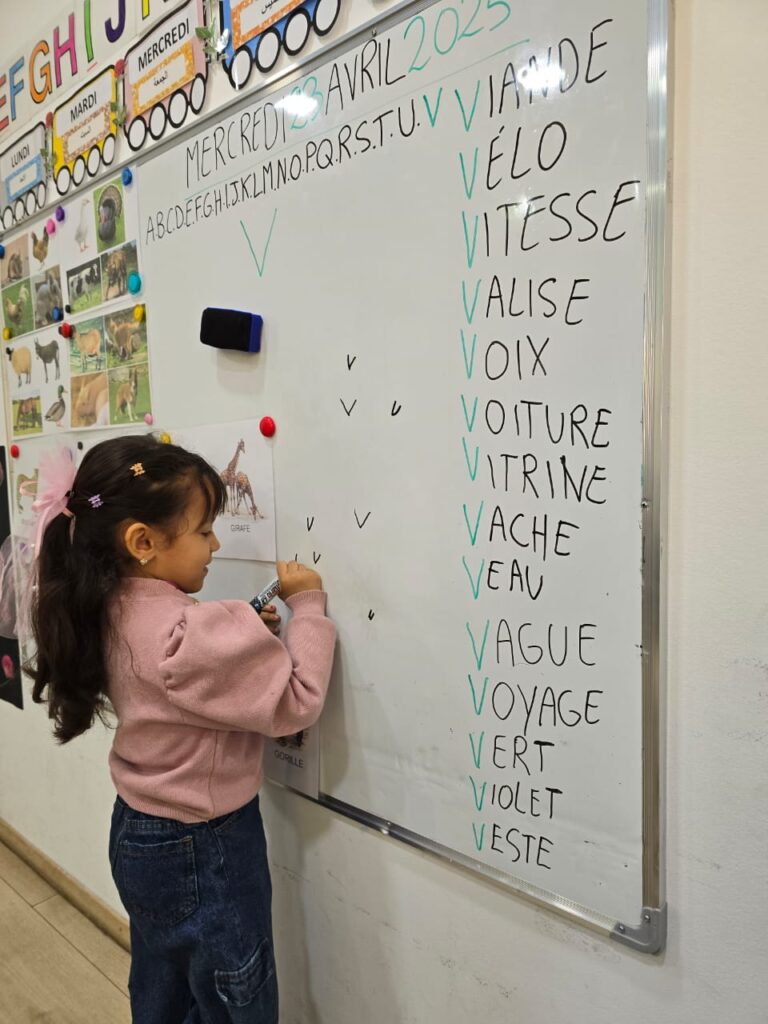 EFGHIJ
LUNDI
MARDI
MERCREDI
MERCREDI 23 AVRIL 2025
A.B.C.D.E.F.G.H.I.J.K.L.M.N.O.P.Q.R.S.T.U.V
V
VIANDE
VÉLO
VITESSE
VALISE
VOIX
VOITURE
VITRINE
VACHE
VEAU
VAGUE
VOYAGE
VERT
VIOLET
VESTE
V
V V
V V
V
GIRAFE
GORILLE